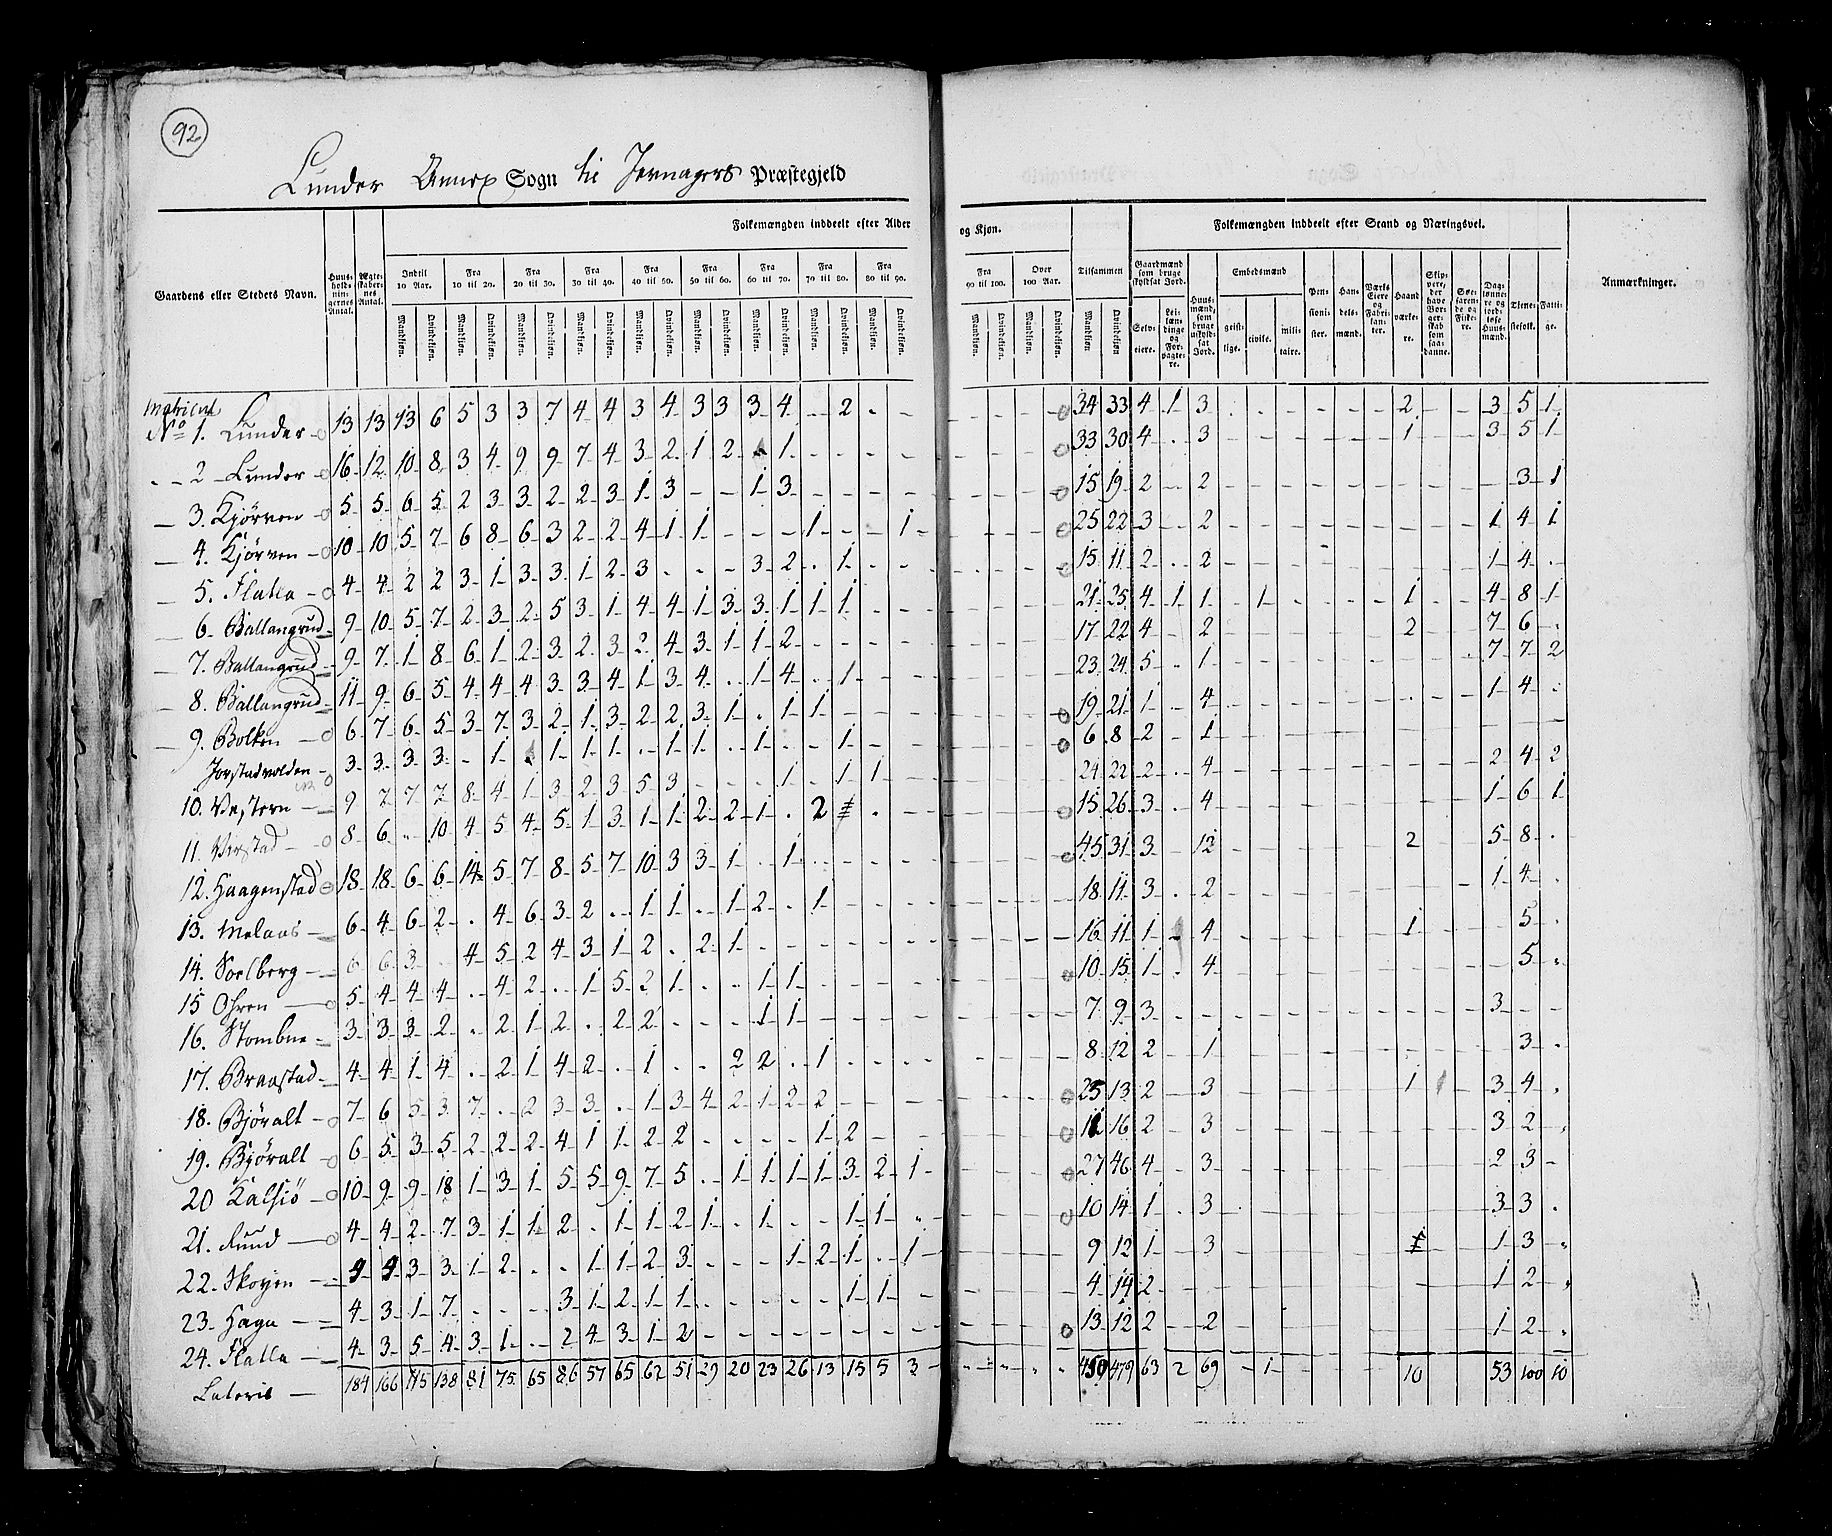 92
Lunder Annex Sogn til Jevnagers Præstegjeld
Folkemængden inddeelt efter Alder og Kjøn.
Folkemængden inddeelt efter Stand og Næringsvei.
Gaardens eller Stedets Navn.
Huusholdningernes Antal.
Ægteskabernes Antal.
Indtil 10 Aar.
Fra 10 til 20.
Fra 20 til 30.
Fra 30 til 40.
Fra 40 til 50.
Fra 50 til 60.
Fra 60 til 70.
Fra 70 til 80.
Fra 80 til 90.
Fra 90 til 100.
Over 100 Aar.
Tilsammen
Mandkjøn. Qvindekjøn.
Gaardmænd som bruge skyldsat Jord.
Selveiere.
Leilændinge og Forpagtere.
Huusmænd, som bruge uskyldsat Jord.
Embedsmænd
geistlige. civile. militaire.
Pensionister.
Handelsmænd.
Værks Eiere og Fabrikanter.
Haandværkere.
Skippere, der have Borgerskab som saadanne.
Søefarende og Fiskere.
Daglønnere og jordløse Huusmænd.
Tjenestefolk.
Fattige.
Anmærkninger.
Matricul
No 1. Lunder 13 13 13 6 5 3 3 7 4 4 3 4 3 3 3 4 - 2 - - 34 33 4 1 3 2 3 5 1
2 Lunder 16 12 10 8 3 4 9 9 7 4 3 2 1 2 1 33 30 4 3 1 3 5 1
3. Kjørven 5 5 6 5 2 3 3 2 2 3 1 3 - - 1 3 15 19 2 2 3 1
4. Kjørven 10 10 5 7 6 8 6 3 2 2 4 1 1 - - - 1 - - 1 25 22 3 2 1 4 1
5. Flatla 4 4 2 2 3 1 3 3 1 2 3 - - - 3 2 - 1 15 11 2 2 1 4
6. Ballangrud 9 10 5 7 2 3 2 5 3 1 4 4 1 3 3 1 1 1 21 25 4 1 1 1 1 4 8 1
7. Ballangrud 9 7 1 8 6 1 2 3 2 3 2 4 3 1 1 2 17 22 4 2 2 7 6
8. Ballangrud 11 9 6 5 4 4 4 3 3 4 1 3 4 - 1 4 - 1 23 24 5 1 7 7 2
9. Bolken 6 7 6 5 3 7 3 2 1 3 2 2 3 1 - 1 1 19 21 1 4 1 4
Jorstadvolden 3 3 3 3 - 1 1 1 1 - 1 1 - 1 - - 1 6 8 2 1
10. Western 9 7 7 7 8 4 1 3 2 3 5 3 - - - 1 - 1 1 24 22 2 4 2 4 2
11. Virstad 8 6 - 10 4 5 4 5 1 3 1 1 2 2 1 - 2 15 26 3 4 1 6 1
12. Haagenstad 18 18 6 6 14 5 7 8 5 7 10 3 3 1 - 1 45 31 3 12 2 5 8
13. Melaas 6 4 6 2 - 4 6 3 2 - 1 1 - 1 2 - 1 18 11 3 2 1 4
14. Soelberg 6 6 3 - 4 5 2 4 3 1 2 - 2 1 16 11 1 4 1 5
15 Ohren 5 4 4 4 - 4 2 - 1 5 2 1 - - 1 1 10 15 1 4 5
16. Stombne 3 3 3 2 - 2 1 2 - 2 2 - - - 1 1 7 9 3 3
17. Braastad 4 4 1 4 - 2 1 4 2 - 1 - - 2 2 - 1 8 12 2 1 3
18. Bjøralt 7 6 5 3 7 - 2 3 3 - 1 3 4 2 1 2 2 25 13 2 3 1 3 4
19. Bjøralt 6 5 3 5 2 2 2 4 1 1 2 2 - - - - 1 2 16 2 3 3 2
20 Kalsiø 10 9 9 18 1 3 1 5 5 9 7 5 - 1 1 1 1 3 2 1 27 46 4 3 2 3
21. Rund 4 4 2 7 3 1 1 2 - 1 1 2 1 - 1 - - 1 1 10 14 1 3 3 3
22. Skoyen 4 4 3 3 1 2 - - 1 1 2 3 - - - 1 2 1 - 1 9 12 1 3 1 3
23. Haga 4 3 1 7 - - - 3 1 2 1 1 - - - - - 1 1 4 14 2 1 2
24. Flatla 4 3 5 4 3 1 - 2 4 3 1 2 13 12 2 2 1 2
Lateris 184 166 115 138 81 75 65 86 57 65 62 51 29 20 23 26 13 15 5 3 450 479 63 2 69 - 1 10 53 100 10